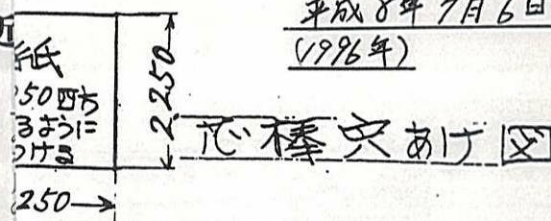 平成8年7月6日
(1996年)
紙
50四方
るように
つける
2.250
芯棒穴あけ図
250